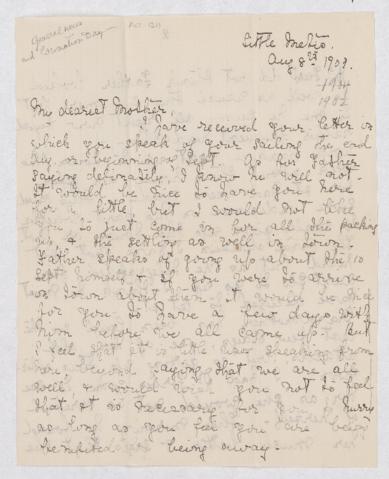 General news
and Coronation Day
Little Metis.
Aug 8th 1902.
1902
My dearest Mother,
I have received your letter in
which you speak of your sailing the end
Aug or beginning of Sept. As for Father
saying definitely, I know he will not.
It would be nice to have you here
for a little, but I would not like
you to just come in for all the packing
up & the settling as well in town.
Father speaks of going up about the 10
Sept himself & if you were to arrive
in town about then, it would be nice
for you to have a few days with
him before we all came up. But
I feel that it is little use speaking from
here beyond saying that we are all
well & would you not to feel
that it is necessary for you to hurry
as long as you feel you are being
benefited being away.